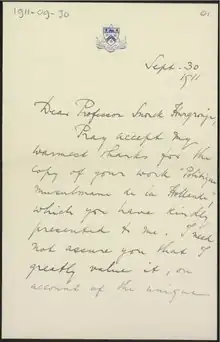 1911-09-30
01
Sept. 30
1911
Dear Professor Snouck Hurgronje,
Pray accept my
warmest thanks for the
copy of your work "Politique
musulmane de la Hollande"
which you have kindly
presented to me. I need
not assure you that I
greatly value it, on
account of the unique